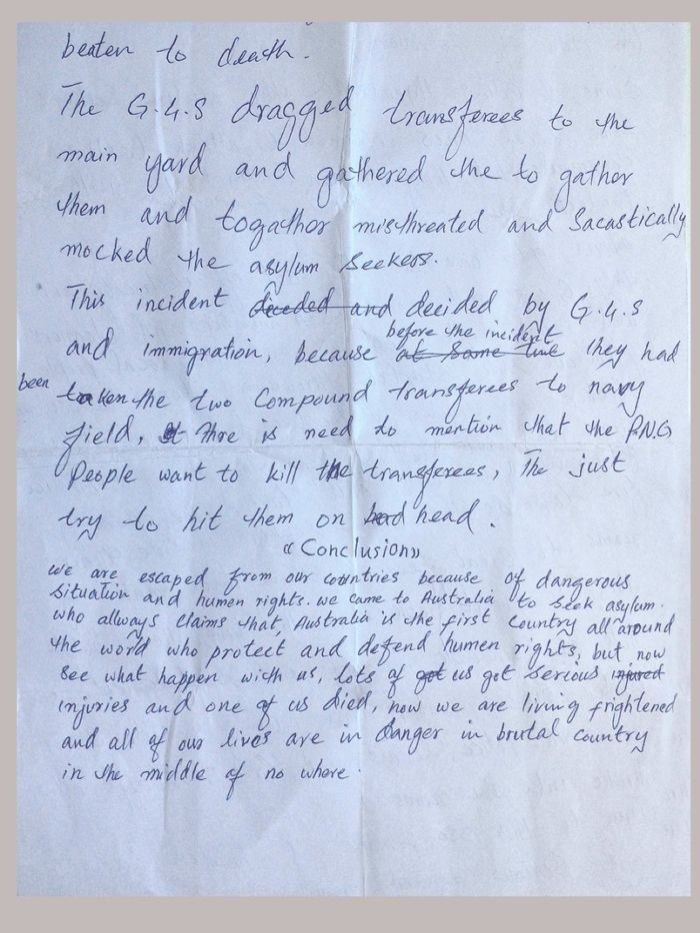 beaten to death.
The G.4.S dragged transferees to the
main yard and gathered the to gather
them and togather misthreated and Sacastically
mocked the asylum seekers.
This incident decided and decided by G.4.S
before the incident
and immigration, because at same time they had
been taken the two Compound transferees to navy
field, it thre is need to mention that the P.N.G
People want to kill the transferees, The just
try to hit them on head.
"Conclusion"
we are escaped from our countries because of dangerous
situation and human rights. we came to Australia to seek asylum.
who allways claims that, Australia is the first country all around
the world who protect and defend human rights, but now
see what happen with us, lots of got us got serious injured
injuries and one of us died, now we are living frightened
and all of our lives are in danger in brutal country
in the middle of no where.